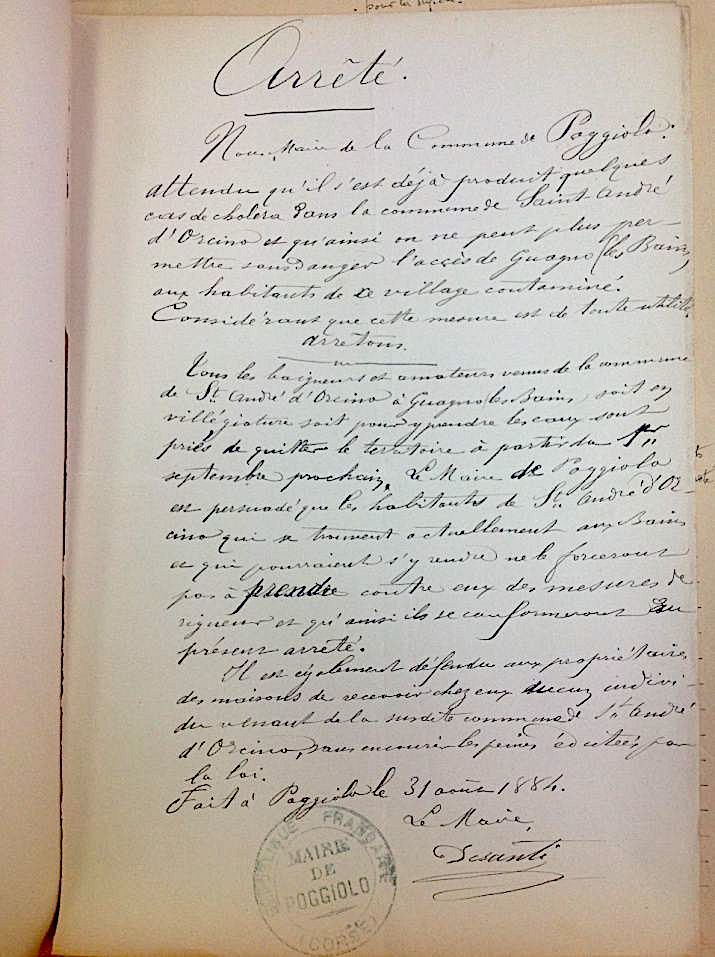 pour la
Arrêté.
Nous, Maire de la Commune de Poggiolo:
attendu qu'il s'est déjà produit quelques
cas de choléra dans la commune de Saint André
d'Orcino et qu'ainsi on ne peut plus per-
mettre sans danger l'accès de Guagno (les Bains)
aux habitants de ce village contaminé.
Considérant que cette mesure est de toute utilité.
arretons.
Tous les baigneurs et amateurs venus de la commune
de St. André d'Orcino à Guagno (les Bains) soit en
villégiature soit pour y prendre les eaux sont
priés de quitter le territoire à partir du 1er
septembre prochain. Le Maire de Poggiolo
est persuadé que les habitants de St. André d'Or-
cino qui se trouvent actuellement aux Bains
et qui pourraient s'y rendre ne le forceront
pas à prendre contre eux des mesures de
rigueur et qu'ainsi ils se conformeront au
présent arrêté.
Il est également défendu aux propriétaires
des maisons de recevoir chez eux aucun indivi-
du venant de la susdite commune de St. André
d'Orcino, sans encourir les peines édictées par
la loi.
Fait à Poggiolo le 31 août 1884.
Le Maire,
Desanti
RÉPUBLIQUE FRANÇAISE
MAIRIE
DE
POGGIOLO
(CORSE)